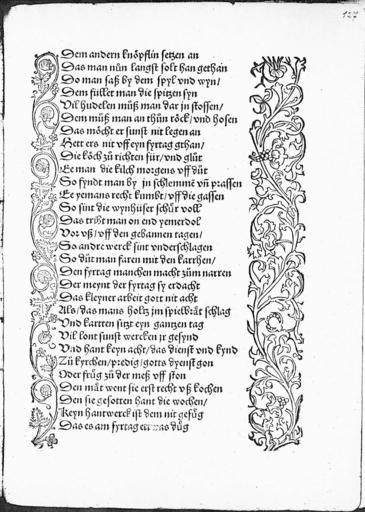 127
Dem andern knöpflin setzen an
Das man nün langst solt han gethan
Do man saß by dem spyl vnd wyn/
Dem füllet man die spitzen syn
Vil hudelen müß man dar jn stossen/
Dem müß man an thůn röck/vnd hosen
Das möcht er sunst nit legen an
Hett ers nit vff eyn fyrtag gthan/
Die köch zů richten für/vnd glüt
Ee man die kilch morgens vff důt
So fyndt man by jn schlemmē vn̄ prassen
Ee yemans recht kumbt/vff die gassen
So sint die wynhüser schür voll
Das tribt man on end yemerdol
Vor vß/vff den gebannen tagen/
So andre werck sint vnderschlagen
So důt man faren mit den karrhen/
Den fyrtag manchen macht zům narren
Der meynt der fyrtag sy erdacht
Das kleyner arbeit gott nit acht
Als/das mans holtz im spielbrät schlag
Vnd kartten sitzt eyn gantzen tag
Vil lont sunst wercken jr gesynd
Vnd hant keyn acht/das dienst vnd kynd
Zů kyrchen/predig/gotts dyenst gon
Oder frůg zů der meß vff ston
Den mät went sie erst recht vß kochen
Den sie gesotten hant die wochen/
Keyn hantwerck ist dem nit gefüg
Das es am fyrtag ettwas düg